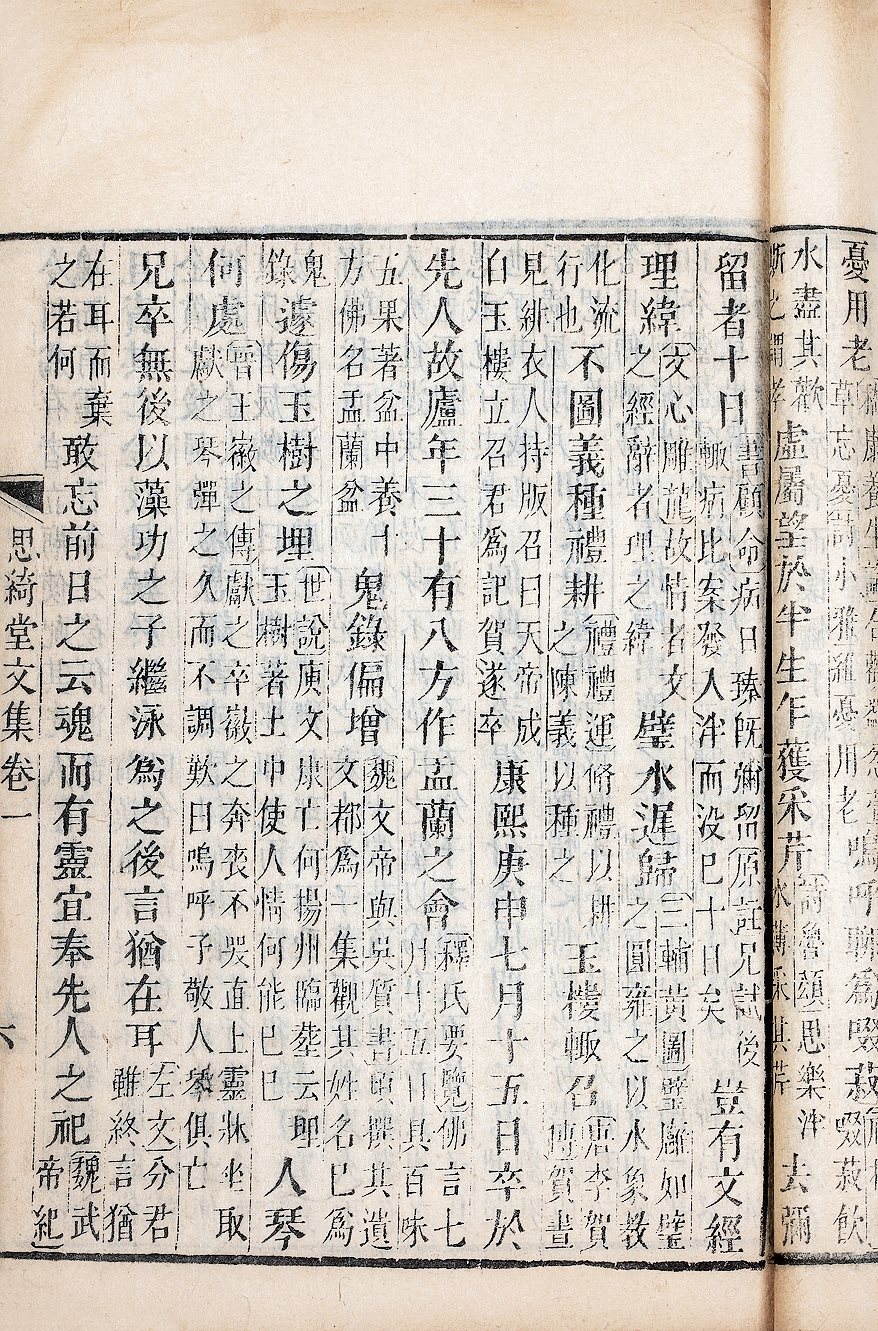 憂用老草忘憂詩小雅維憂用老嗚呼聊為啜菽啜菽飲
水盡其歡斯之謂孝虛屬望於半生年獲采芹詩魯頌思樂泮水薄采其芹去彌
留者十日書顧命病日臻既彌留原註兄試後輙病比案發入泮而没已十日矣豈有文經
理緯文心雕龍故情者文之經辭者理之緯璧水遲歸三輔黃圖璧廱如璧之圓雍之以水象教
化流行也不圖義種禮耕禮禮運脩禮以耕之陳義以種之玉樓輙召唐李賀傳賀晝
見緋衣人持版召曰天帝成白玉樓立召君為記賀遂卒康熙庚申七月十五日卒於
先人故廬年三十有八方作盂蘭之會釋氏要覽佛言七月十五日具百味
五果著盆中養十方佛名盂蘭盆鬼錄偏增魏文帝與吳質書頃撰其遺文都為一集觀其姓名已為
鬼錄遽傷玉樹之埋世說庾文康亡何揚州臨葬云埋玉樹著土中使人情何能已已人琴
何處晉王徽之傳獻之卒徽之奔喪不哭直上靈牀坐取獻之琴彈之久而不調歎曰嗚呼子敬人琴俱亡
兄卒無後以藻功之子繼泳為之後言猶在耳左文分君雖終言猶
在耳而棄之若何敢忘前日之云魂而有靈宜奉先人之祀魏武帝紀
思綺堂文集卷一
六